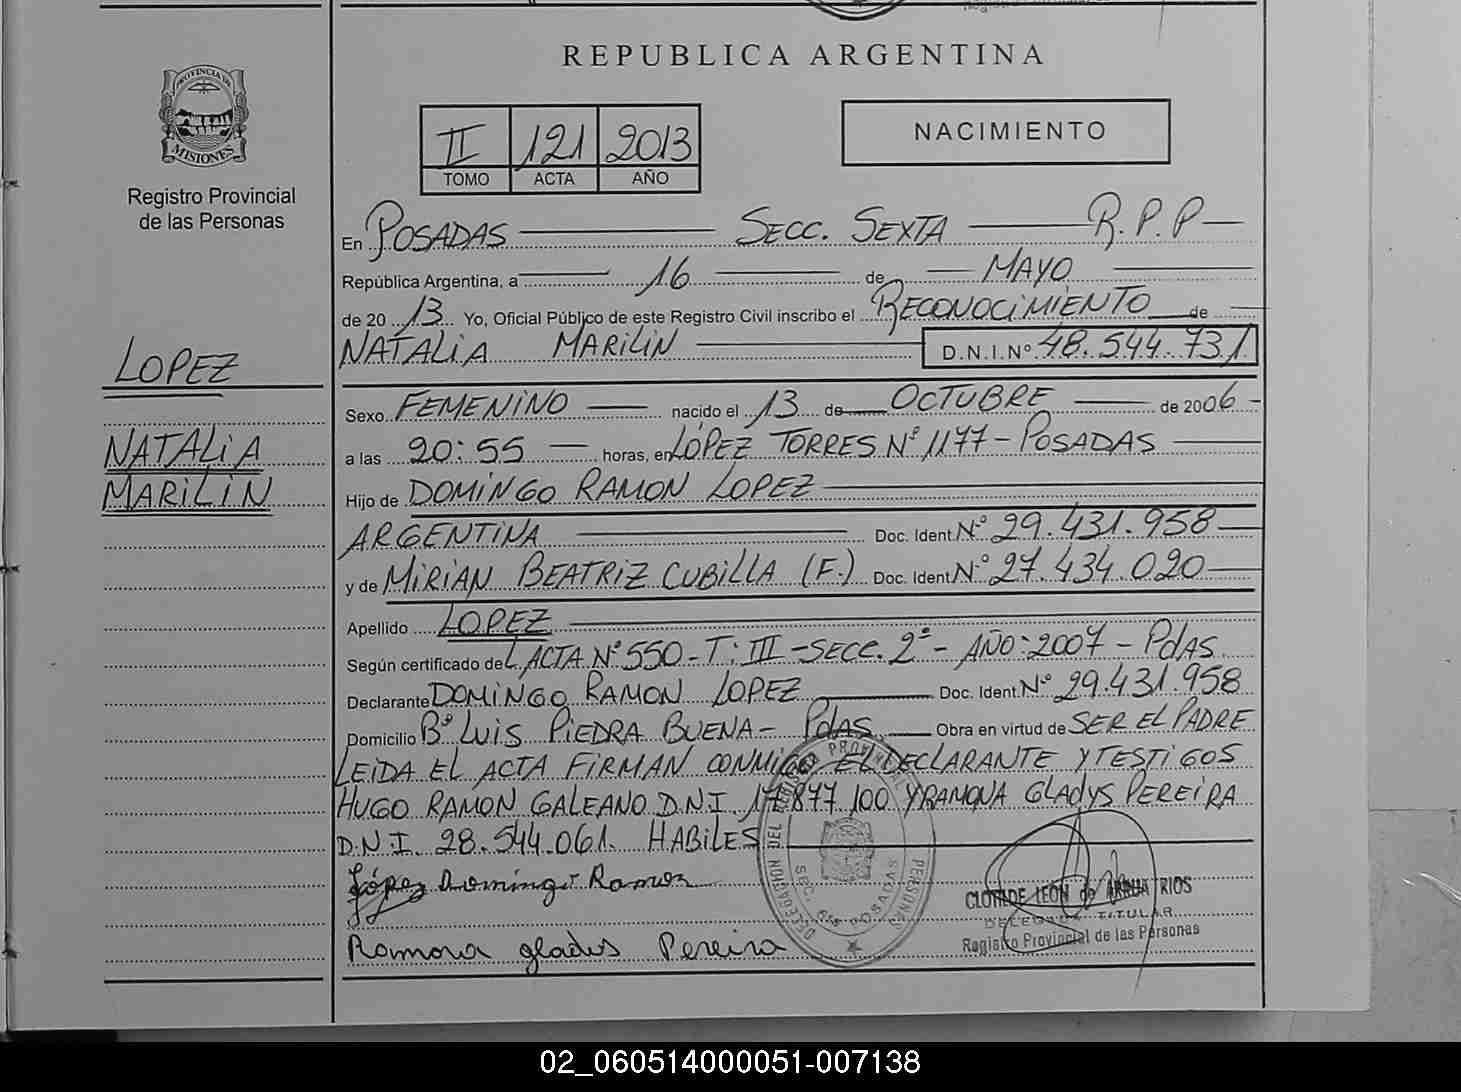 REPUBLICA ARGENTINA
PROVINCIA DE
MISIONES
Registro Provincial
de las Personas
II 121 2013
TOMO ACTA AÑO
NACIMIENTO
En POSADAS SECC. SEXTA R.P.P
República Argentina, a 16 de MAYO
de 20 13 Yo, Oficial Público de este Registro Civil inscribo el RECONOCIMIENTO de
NATALIA MARILIN D.N.I.Nº 48.544.731
LOPEZ
NATALIA
MARILIN
Sexo FEMENINO nacido el 13 de OCTUBRE de 2006
a las 20:55 horas, en LÓPEZ TORRES Nº 1177 - POSADAS
Hijo de DOMINGO RAMON LOPEZ
ARGENTINA Doc. Ident Nº 29.431.958
y de MIRIAN BEATRIZ CUBILLA (F.) Doc. Ident Nº 27.434.020
Apellido LOPEZ
Según certificado de L ACTA Nº 550 - T: III - SECC. 2º - AÑO: 2007 - PdAS
Declarante DOMINGO RAMON LOPEZ Doc. Ident. Nº 29.431.958
Domicilio Bº LUIS PIEDRA BUENA - PdAS Obra en virtud de SER EL PADRE
LEIDA EL ACTA FIRMAN CONMIGO EL DECLARANTE Y TESTIGOS
HUGO RAMON GALEANO D.N.I. 17.877.100 Y RAMONA GLADYS PEREIRA
D.N.I. 28.544.061. HABILES
López Domingo Ramon
Ramona gladis Pereira
SEC. 6ta POSADAS
CLOTILDE LEON de
DELEGADA TITULAR
Registro Provincial de las Personas
02_060514000051-007138